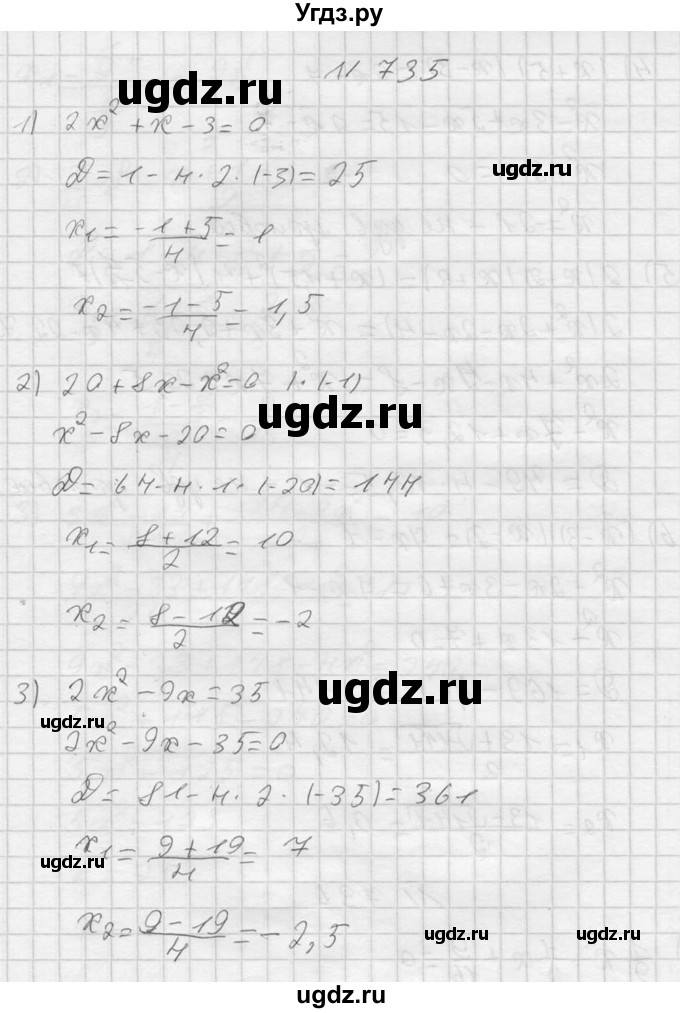 Угдз.ру
№ 735
ugdz.ru
1) 2x² + x - 3 = 0
ugdz.ru
D = 1 - 4 · 2 · (-3) = 25
x₁ = (-1+5)/4 = 1
x₂ = (-1-5)/4 = -1,5
ugdz.ru
2) 20 + 8x - x² = 0 | · (-1)
ugdz.ru
x² - 8x - 20 = 0
D = 64 - 4 · 1 · (-20) = 144
x₁ = (8+12)/2 = 10
x₂ = (8-12)/2 = -2
3) 2x² - 9x = 35
ugdz.ru
ugdz.ru
2x² - 9x - 35 = 0
D = 81 - 4 · 2 · (-35) = 361
x₁ = (9+19)/4 = 7
ugdz.ru
x₂ = (9-19)/4 = -2,5
ugdz.ru
ugdz.ru
ugdz.ru